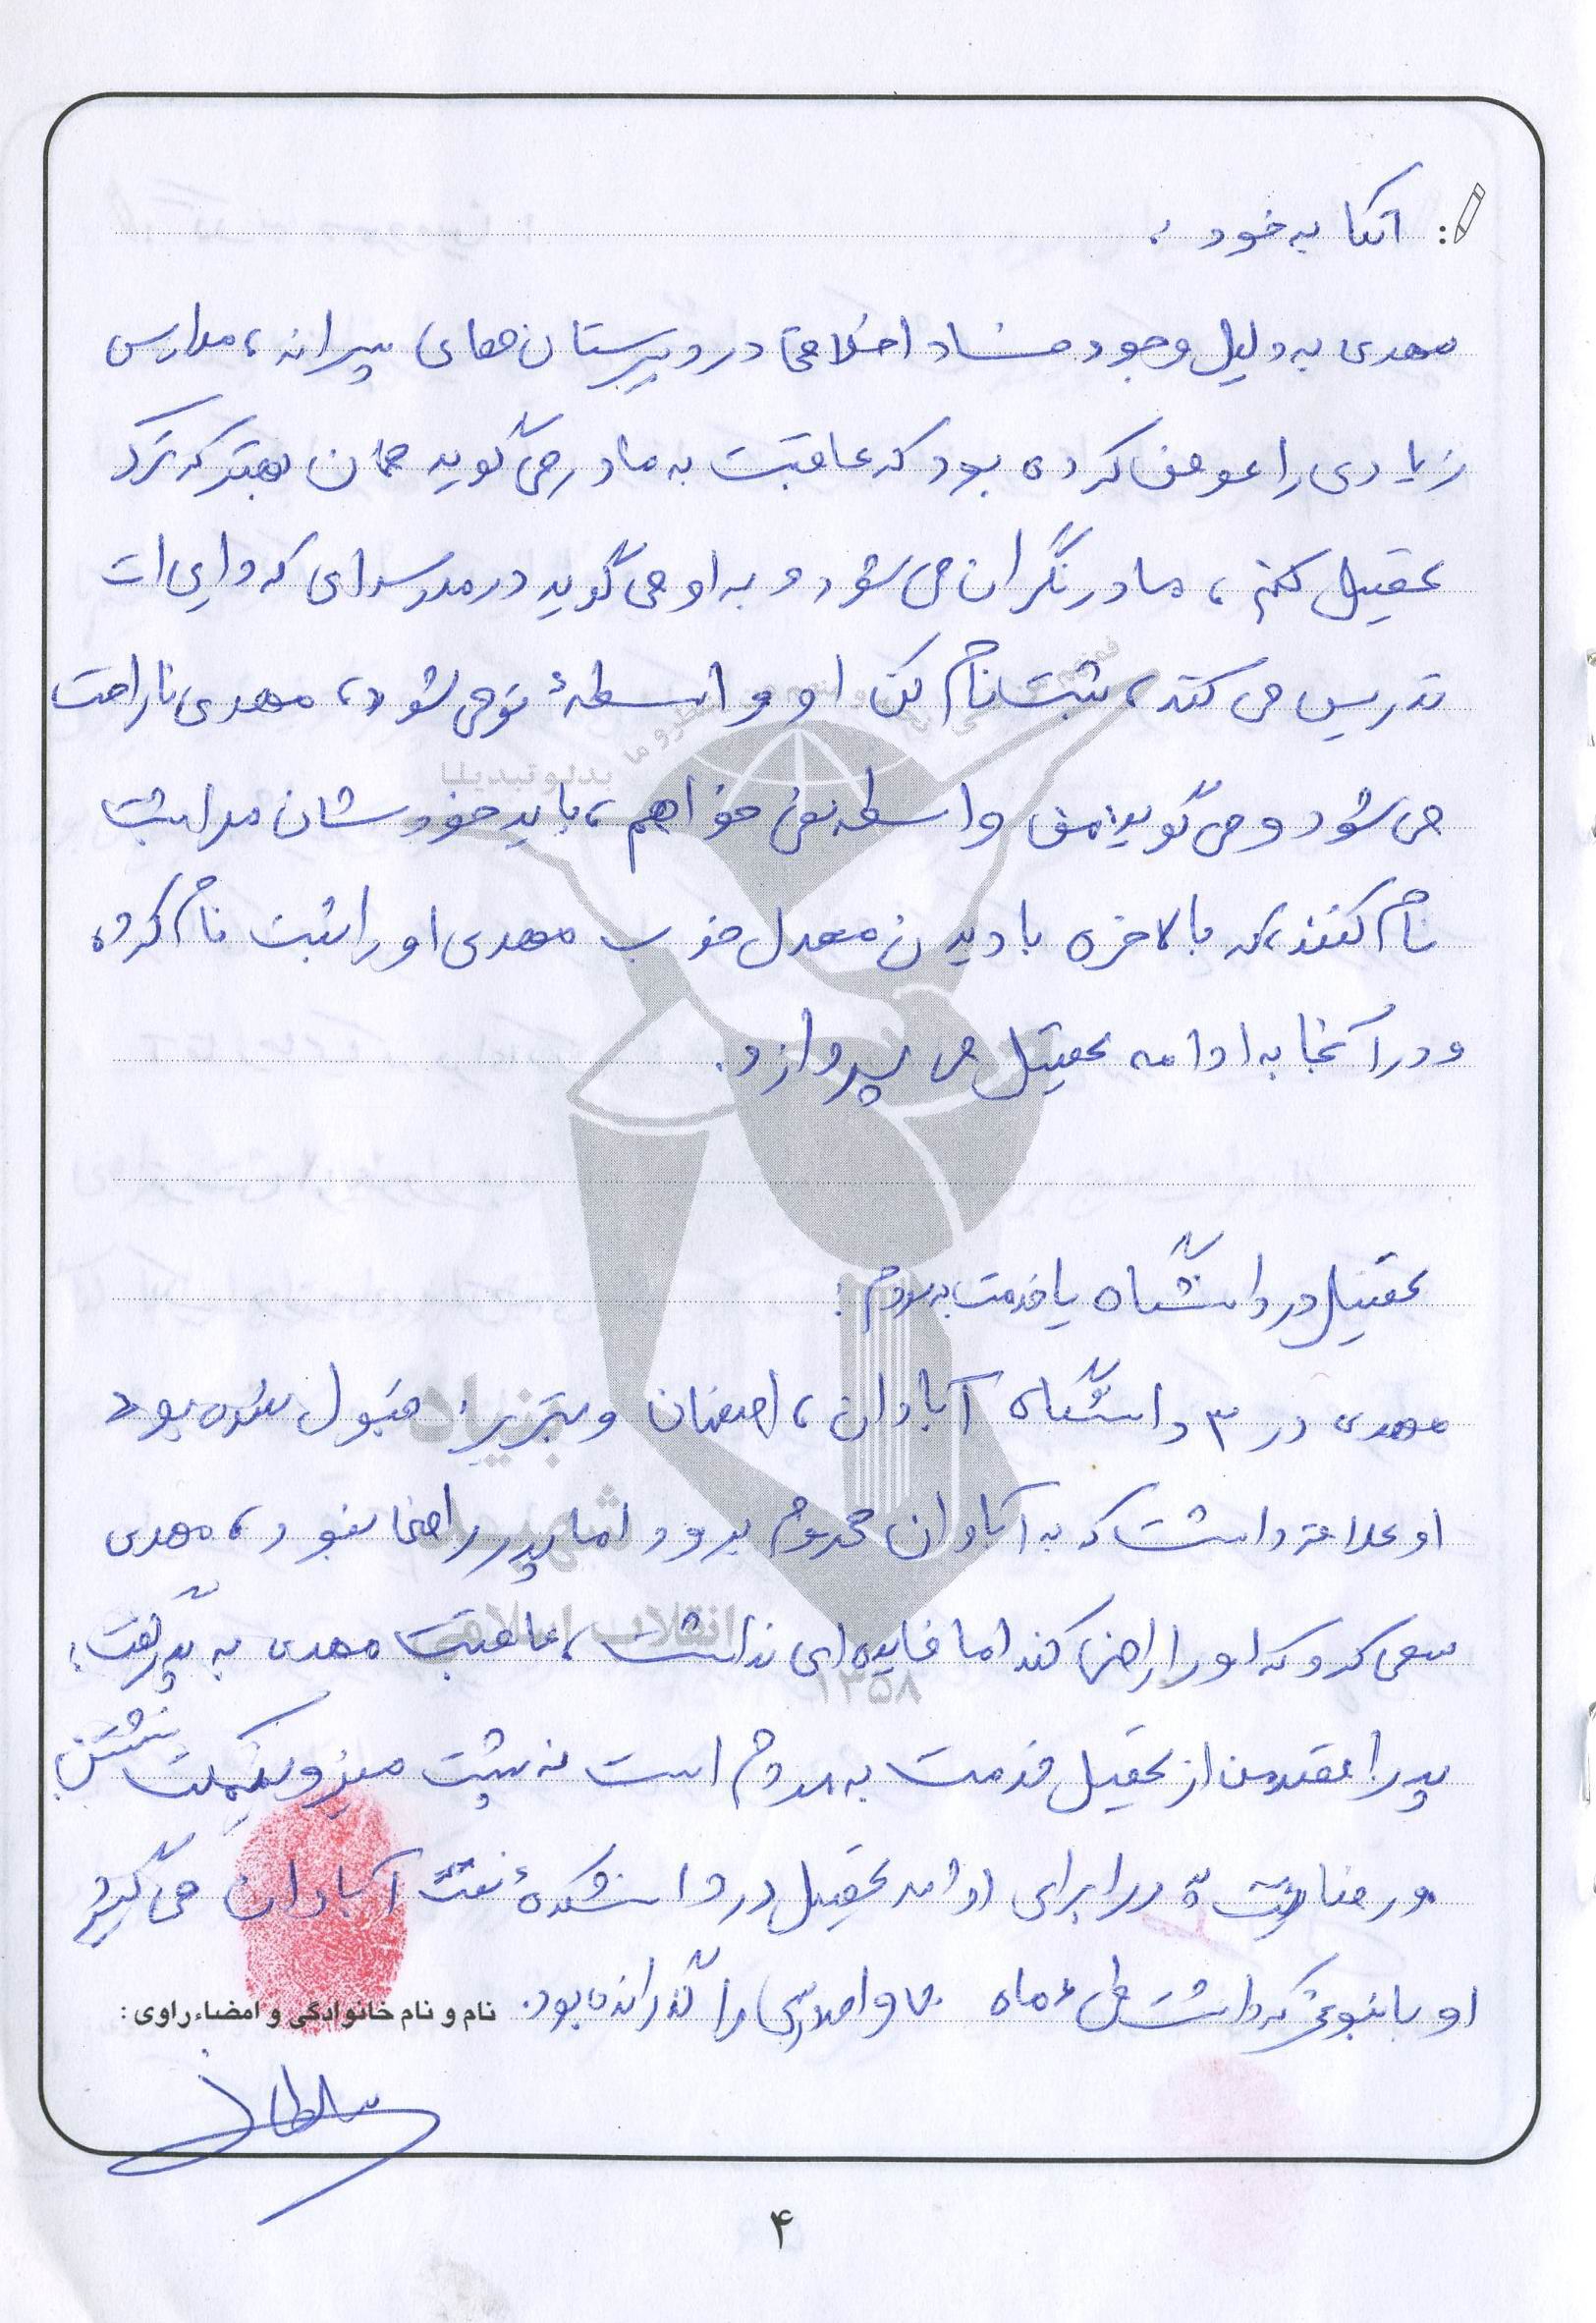 اتکا به خود :
مهدی به دلیل وجود فساد اخلاقی در دبیرستان های پسرانه، مدارس
زیادی را عوض کرده بود که عاقبت به مادر می گوید همان بهتر که ترک
تحصیل کنم، مادر نگران می شود و به او می گوید در مدرسه ای که دایی ات
تدریس می کند، ثبت نام کن او واسطهٔ تو می شود، مهدی ناراحت
می شود و می گوید: من واسطه نمی خواهم، باید خودشان مرا ثبت
نام کنند، که بالاخره با دیدن معدل خوب مهدی او را ثبت نام کرده
و در آنجا به ادامه تحصیل می پردازد.
تحصیل در دانشگاه یا خدمت به مردم :
مهدی در ۳ دانشگاه آبادان، اصفهان و تبریز قبول شده بود
او علاقه داشت که به آبادان محروم برود اما پدر راضی نبود، مهدی
سعی کرد که او را راضی کند اما فایده ای نداشت، عاقبت مهدی به پدر گفت:
پدر را مقصد من از تحصیل خدمت به مردم است نه پشت میز و نیمکت نشستن
و رضایت پدر را برای ادامه تحصیل در دانشکدهٔ نفت آبادان می گیرد
او با نبوغی که داشت طی ۶ ماه واحد درسی را گذرانده بود.
نام و نام خانوادگی و امضاء راوی :
بنیاد
شهید
انقلاب اسلامی
۱۳۵۸
۴